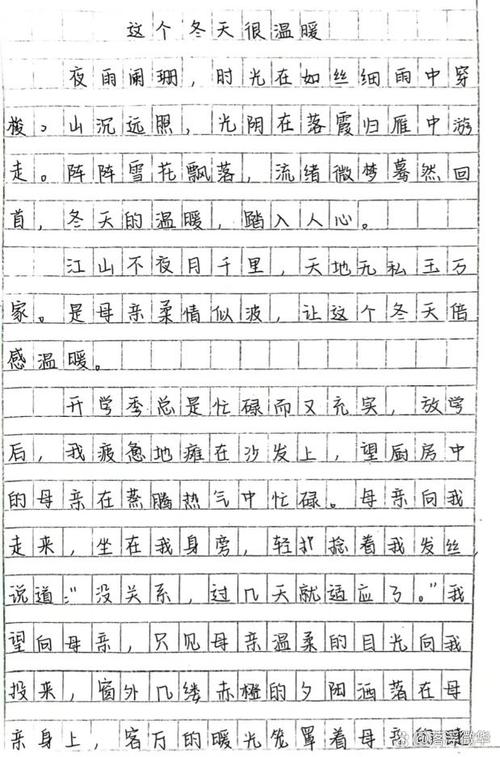 这个冬天很温暖
夜雨阑珊，时光在如丝细雨中穿
梭。山沉远照，光阴在落霞归雁中游
走。阵阵雪花飘落，流绪微梦蓦然回
首，冬天的温暖，踏入人心。
江山不夜月千里，天地无私玉万
家。是母亲柔情似波，让这个冬天倍
感温暖。
开学季总是忙碌而又充实，放学
后，我疲惫地瘫在沙发上，望厨房中
的母亲在蒸腾热气中忙碌。母亲向我
走来，坐在我身旁，轻扑捻着我发丝
说道：“没关系，过几天就适应了。”我
望向母亲，只见母亲温柔的目光向我
投来，窗外几缕赤橙的夕阳洒落在母
亲身上，客万的暖光笼罩着母亲